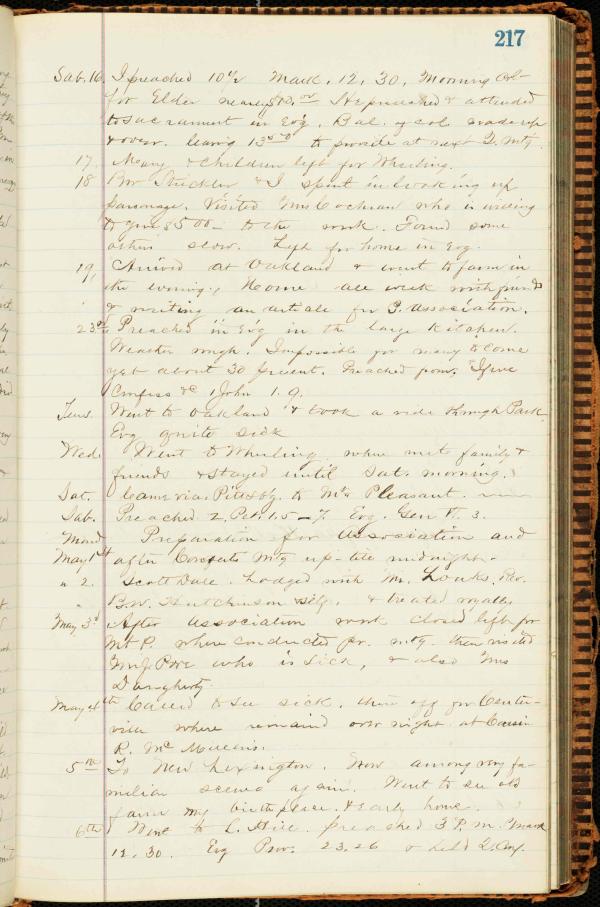 217
Sab. 16. I preached 10½ Mark. 12, 30. Morning Col-
for Elder nearly $12.00 He preached & attended
to sacrament in Evg. Bal. of col. made up
& over. leaving 13 to provide at next Q. Mtg.
17. Mary & children left for Wheeling.
18 Bro Strickler & I spent in looking up
parsonage. Visited Mrs Cochran who is willing
to give $500 - to the work. Found some
others slow. Left for home in Evg.
19, Arrived at Oakland & went to farm in
the evening. Home all week with friends
& writing an article for P. Association.
23rd Preached in Evg in the large kitchen.
Weather rough. Impossible for many to come
yet about 30 present. Preached from, "If we
Confess &c 1 John 1.9.
Tues. Went to Oakland & took a ride through Park
Evg quite sick
Wed. Went to Wheeling where met family &
friends & stayed until Sat. morning.
Sat. Came via. Pittsbg. to Mt. Pleasant.
Sab. Preached 2, Pet. 1.5-7. Evg. Gen V. 3.
Mond Preparation for Association and
May 1st after Concerts Mtg up-till midnight.
" 2. Scottdale. Lodged with Mr. Louks, Rev.
B.W. Hutchinson & self. & treated royally
May 3d After Association work closed left for
Mt P. where conducted pr. mtg. then visited
who is sick, & also Mrs
Daugherty.
May 4th Called to see sick. then off for Center-
ville where remained over night at Cousin
R. McMullin.
5th To New Lexington. Now among very fa-
miliar scenes again. Went to see old
farm my birthplace & early home.
6th Went to C. Hill. preached 3 P.m. Mark
12, 30. Evg Prov. 23,26 & held Q.